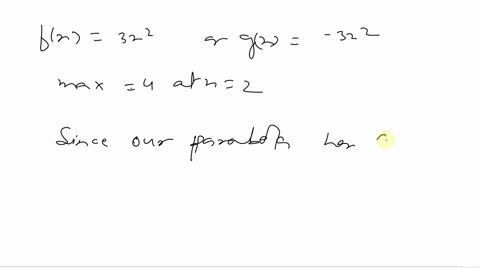 f(x) = 3x² or g(x) = -3x²
max = 4 at x = 2
Since our parabola has